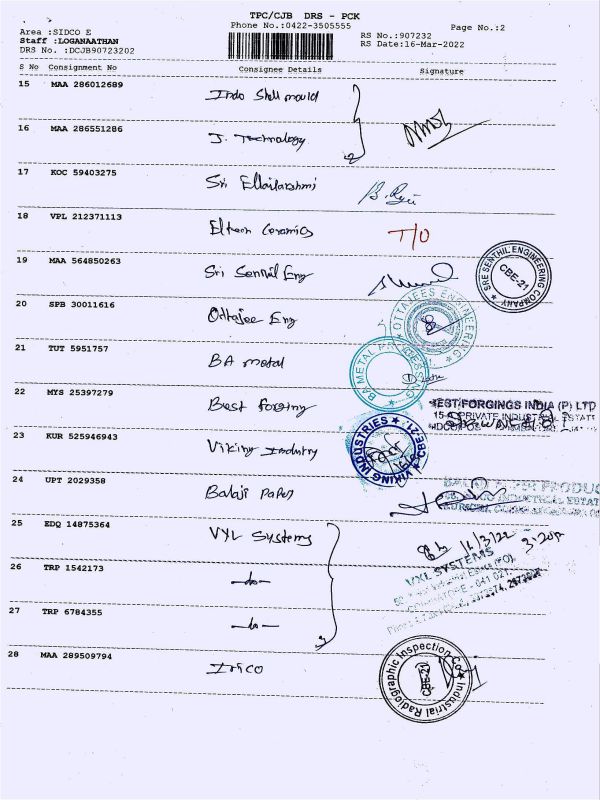 TPC/CJB DRS - PCK
Phone No.:0422-3505555
Page No.:2
Area :SIDCO E
Staff :LOGANAATHAN
DRS No. :DCJB90723202
RS No.:907232
RS Date:16-Mar-2022
S No Consignment No Consignee Details Signature
15 MAA 286012689 Indo Shell mould
16 MAA 286551286 J. Technology
17 KOC 59403275 Sri Ellailakshmi
18 VPL 212371113 Ceramics T/O
19 MAA 564850263 Sri Senthil Eng
SRE SENTHIL ENGINEERING COMPANY
CBE-21
20 SPB 30011616 Ottajee Eng
OTTAJEES ENGINEERING
21 TUT 5951757 BA metal
BA METAL PROCESSING
22 MYS 25397279 Best forging
EST FORGINGS INDIA (P) LTD
23 KUR 525946943 Viking Industry
VIKING INDUSTRIES
CBE-21
24 UPT 2029358 Balaji Paper
INDUSTRIAL ESTATE
25 EDQ 14875364 VXL Systems
16/3/22
VXL SYSTEMS
26 TRP 1542173 -do-
27 TRP 6784355 -do-
28 MAA 289509794 Irico
Industrial Radiographic Inspection Co
CBE-21